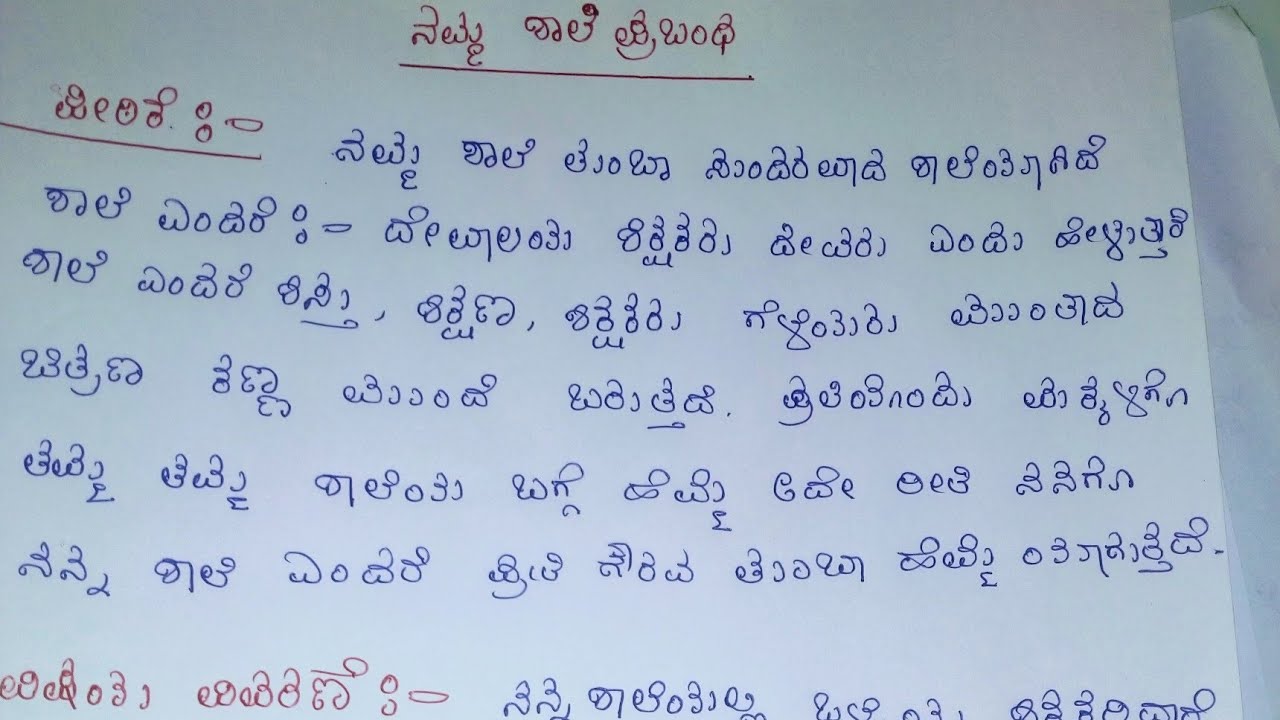 ನಮ್ಮ ಶಾಲೆ ಪ್ರಬಂಧ
ಪೀಠಿಕೆ :-
ನಮ್ಮ ಶಾಲೆ ತುಂಬಾ ಸುಂದರವಾದ ಶಾಲೆಯಾಗಿದೆ
ಶಾಲೆ ಎಂದರೆ :- ದೇವಾಲಯ ಶಿಕ್ಷಕರು ದೇವರು ಎಂದು ಹೇಳುತ್ತಾರೆ
ಶಾಲೆ ಎಂದರೆ ಶಿಸ್ತು, ಶಿಕ್ಷಣ, ಶಿಕ್ಷಕರು ಗೆಳೆಯರು ಮುಂತಾದ
ಚಿತ್ರಣ ಕಣ್ಣಾ ಮುಂದೆ ಬರುತ್ತದೆ. ಪ್ರತಿಯೊಂದು ಮಕ್ಕಳಿಗೂ
ತಮ್ಮ ತಮ್ಮ ಶಾಲೆಯ ಬಗ್ಗೆ ಹೆಮ್ಮೆ ಅದೇ ರೀತಿ ನನಗೂ
ನನ್ನ ಶಾಲೆ ಎಂದರೆ ಪ್ರೀತಿ ಗೌರವ ತುಂಬಾ ಹೆಮ್ಮೆ ಯಾಗುತ್ತದೆ.
ವಿಷಯ ವಿವರಣೆ :- ನನ್ನ ಶಾಲೆಯಲ್ಲಿ ಒಳ್ಳೆಯ